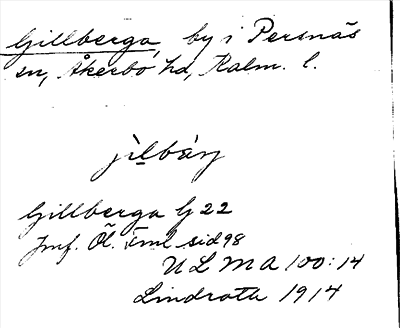 Gillberga, by i Persnäs
sn, Åkerbo hd, Kalm. l.
Gillberga G 22
Jmf. Öl. Fml sid 98
ULMA 100:14
Lindroth 1914